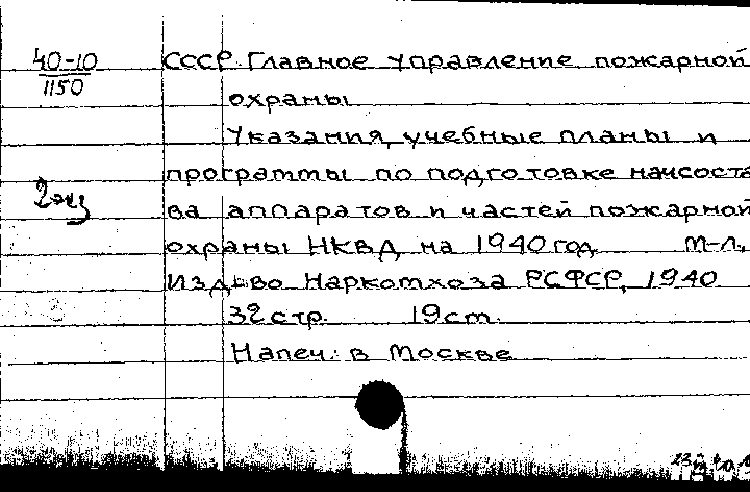 40-10
1150
СССР. Главное управление пожарной
охраны
Указания, учебные планы и
программы по подготовке начсоста
2 экз
ва аппаратов и частей пожарной
охраны НКВД на 1940 год. М-Л.,
Изд-во Наркомхоза РСФСР, 1940
32 стр. 19 cm.
Напеч. в Москве